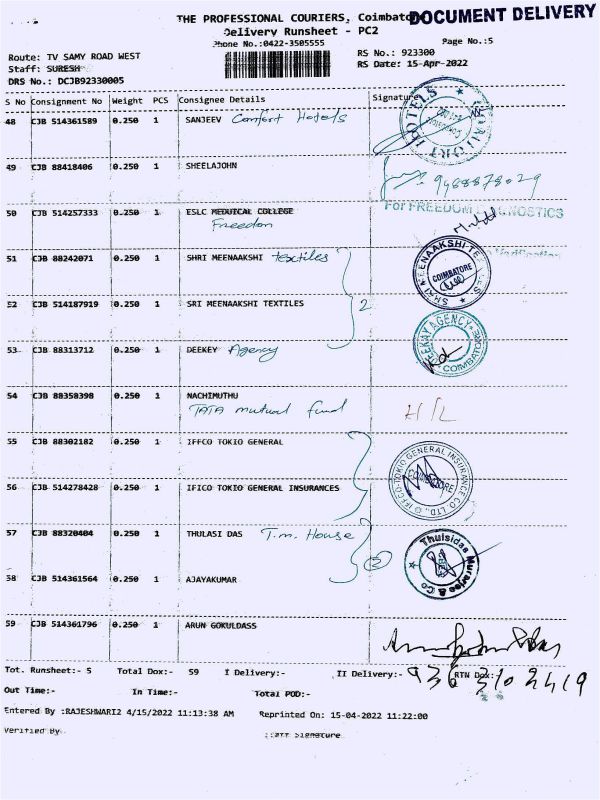 THE PROFESSIONAL COURIERS, Coimbatore
DOCUMENT DELIVERY
Delivery Runsheet - PC2
Phone No.:0422-3505555
Page No.:5
Route: TV SAMY ROAD WEST
RS No.: 923300
Staff: SURESH
RS Date: 15-Apr-2022
DRS No.: DCJB92330005
S No Consignment No Weight PCS Consignee Details Signature
48 CJB 514361589 0.250 1 SANJEEV Comfort Hotels
49 CJB 88418406 0.250 1 SHEELAJOHN
9488878029
50 CJB 514257333 0.250 1 ESLC MEDUICAL COLLEGE
For FREEDOM DIAGNOSTICS
Freedom
51 CJB 88242071 0.250 1 SHRI MEENAAKSHI textiles
SHRI MEENAAKSHI TEXTILES
COIMBATORE
52 CJB 514187919 0.250 1 SRI MEENAAKSHI TEXTILES
2
DEEKAY AGENCY
COIMBATORE
53 CJB 88313712 0.250 1 DEEKEY Agency
54 CJB 88358398 0.250 1 NACHIMUTHU
TATA mutual fund
55 CJB 88302182 0.250 1 IFFCO TOKIO GENERAL
IFFCO-TOKIO GENERAL INSURANCE CO LTD.,
COIMBATORE
56 CJB 514278428 0.250 1 IFICO TOKIO GENERAL INSURANCES
57 CJB 88320404 0.250 1 THULASI DAS T.m. House
Thulsidas Murarjee & Co
58 CJB 514361564 0.250 1 AJAYAKUMAR
59 CJB 514361796 0.250 1 ARUN GOKULDASS
Tot. Runsheet:- 5 Total Dox:- 59 I Delivery:- II Delivery:- RTN Dox:-
936 310 2419
Out Time:- In Time:- Total POD:-
Entered By :RAJESHWARI2 4/15/2022 11:13:38 AM Reprinted On: 15-04-2022 11:22:00
Verified By Staff Signature